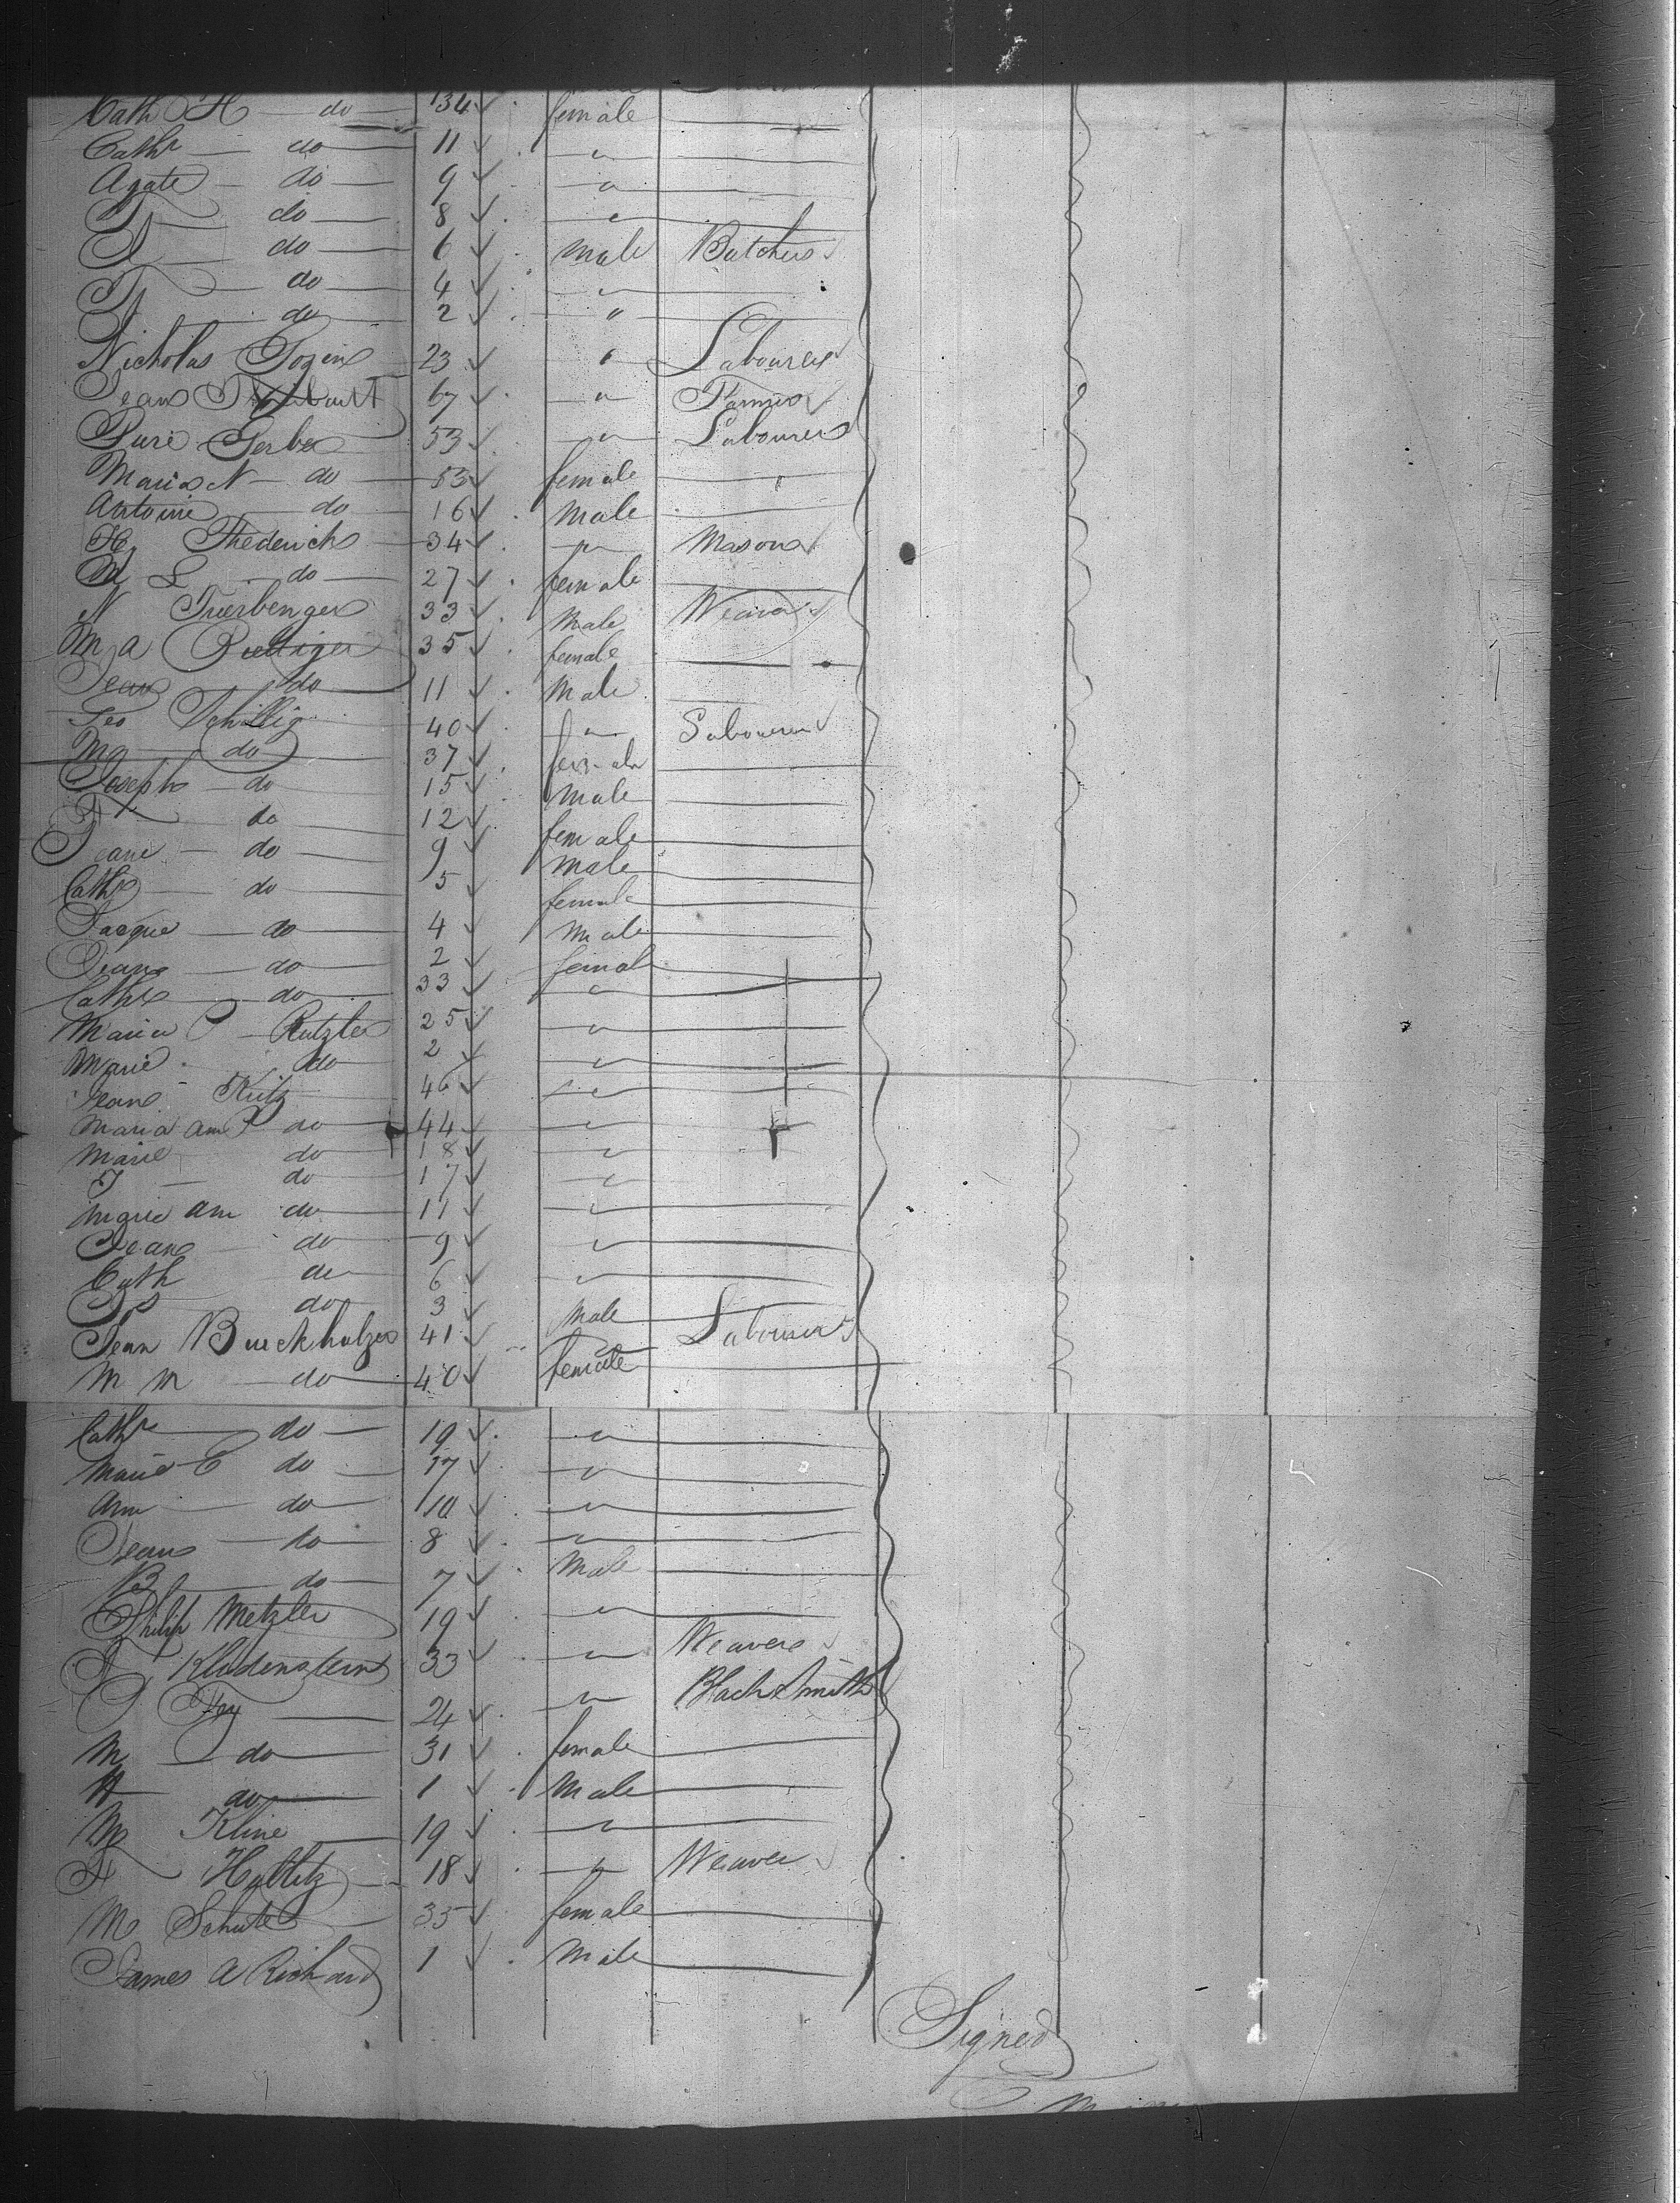 Cath H do 34 female
Cathe do 11 "
Agate do 9 "
do 8 "
do 6 male Butcher
do 4 "
do 2 "
Nicholas 23 " Labourer
Jean 67 " Farmer
Gerber 53 " Labourer
Maria N do 53 female
Antoine do 16 Male
H Thederich 34 " Mason
M L do 27 female
N 33 Male Weaver
M A 35 female
Jean do 11 Male
Geo Schillig 40 " Labourer
Ma do 37 female
Joseph do 15 Male
do 12 female
Jean do 9 Male
Cathe do 5 female
Jacque do 4 Male
Jean do 2 female
Cathe do 33 "
Maria C Rutzler 25 "
Marie do 2 "
Jean Kutz 46 "
Maria Ann do 44 "
Marie do 18 "
J do 17 "
Marie Ann do 11 "
Jean do 9 "
Cath do 6 "
do 3 Male
Jean Burckhalzer 41 Labourer
M M do 40 female
Cathe do 19 "
Marie C do 17 "
Ann do 10 "
Jean do 8 "
B do 7 Male
Philip Metzler 19 "
Kludenstein 33 " Weaver
Fey 24 " Blacksmith
M do 31 female
H do 1 Male
M Kline 19 "
Hablitz 18 " Weaver
M Schute 35 female
James A Richard 1 Male
Signed